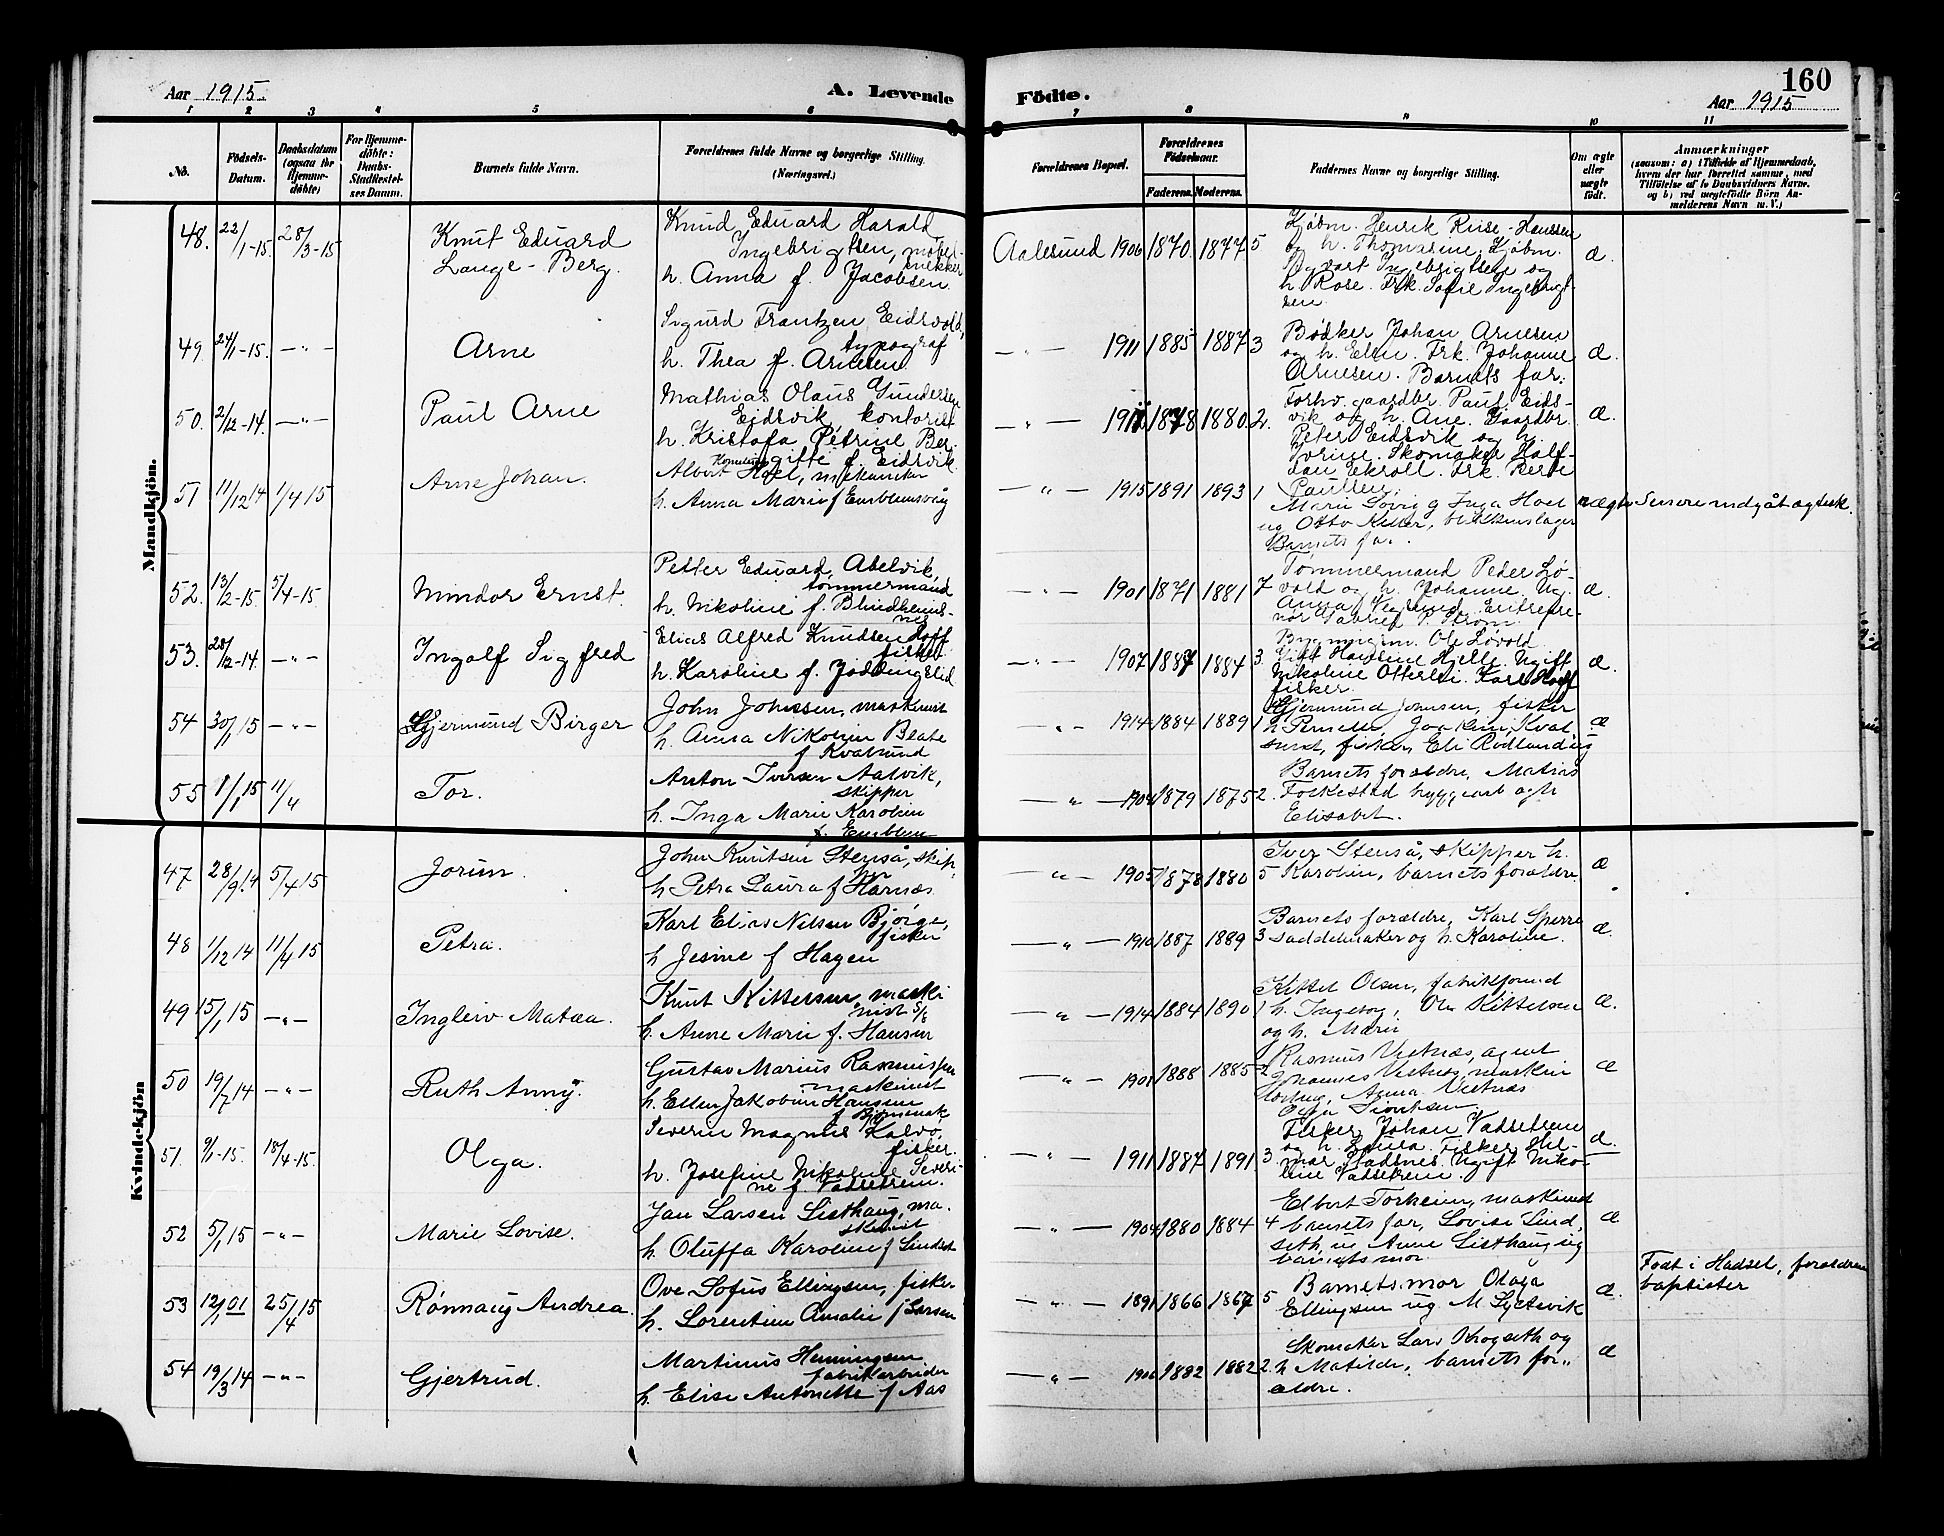 Aar 1915.
A. Levende
Födte.
160
Aar 1915
1 2 3 4 5 6 7 8 9 10 11
No.
Födsels-
Datum.
Daabsdatum
(ogsaa for
Hjemme-
döbte)
For Hjemme-
döbte:
Daabs-
Stadfæstel-
ses Datum.
Barnets fulde Navn.
Forældrenes fulde Navne og borgerlige Stilling.
(Næringsvei.)
Forældrenes Bopæl.
Forældrenes
Födselsaar.
Faderens. Moderens.
Faddernes Navne og borgerlige Stilling.
Om ægte
eller
uægte
födt.
Anmærkninger
(saasom: a) i Tilfælde af Hjemmedaab,
hvem der har forrettet samme, med
Tilföielse af to Daabsvidners Navne.
og b) ved uægtefödte Börn An-
melderens Navn m. V.)
Mandkjön.
48. 22/1-15. 28/3-15
Knut Eduard
Lange-Berg.
Knud Eduard Harald
Ingebrigtsen, møbel-
snekker
h. Anna f. Jacobsen.
Aalesund 1906 1870. 1877 5
Kjøbm. Henrik Riise-Hanssen
og h. Thomasine. Kjøbm.
Sigvart Ingebrigtsen og
h. Rose. Frk. Sofie Ingebrigt-
sen.
æ.
49. 24/1-15. —"—
Arne
Sigurd Frantzen Eidsvold,
typograf
h. Thea f. Arnesen.
—"— 1911 1885 1887 3
Bødker Johan Arnesen
og h. Elen. Frk. Johanne
Arnesen. Barnets far.
æ.
50. 2/12-14. —"—
Paul Arne
Mathias Olaus Gundersen
Eidsvik kontorist
h. Kristofa Petrine Ber-
gitte f. Eidsvik.
—"— 1878 1880. 2.
Forhv. gaardbr. Paul Eids-
vik og h. Ane. Gaardbr.
Peter Eidsvik og h.
Jorine. Skomaker Half-
dan Ekroll. Frk. Berte
Paulsen.
æ.
51 11/12 14 1/4 15
Arne Johan.
Albert Hoel, mekaniker
h. Anna Marie f Emblemsvåg
—"— 1915 1891 1893 1
Marie Sovig og Inga Hoel
ug Otto Keller, blikkenslager
Barnets far.
uægte
Senere indgåt ægtesk.
52. 13/2-15. 5/4-15
Mindor Ernst.
Petter Eduard Abelvik,
tømmermand
h. Nikoline f. Blindheims-
nes
—"— 1901 1871 1881 7
Tømmermand Peder Lø-
vold og h. Johanne. Ug.
Anna Entrepre-
nør Gabriel P. Strøm.
æ.
53. 28/12-14. —"—
Ingolf Sigfred
Elias Alfred Knudsen Hoff
fisker
h. Karoline f. Joddingelid
—"— 1907 1887 1884 3.
Bygningsm. Ole Løvold
Gift Hansine Hjelle. Ugift
Nikoline Otterlei. Karl Hoff
fisker.
æ.
54 30/1 15 —"—
Gjermund Birger
John Johnsen, maskinist
h. Anna Nikoline Beate
f Kvalsund
—"— 1914 1884 1889 1
Gjermund Johnsen, fisker
h. Pernelle, Joakim Kval
sund, fisker, Eli Rødland ug
æ
55 1/1 15 11/4
Tor.
Anton Iversen Aalvik,
skipper
h. Inga Marie Karoline
f. Emblem
—"— 1904 1879 1875 2.
Barnets forældre, Matias
Folkestad byggearb og h
Elisabet.
Kvindekjön
47 28/9 14 5/4 15
Jorun.
John Knutsen Stenså, skip
per
h Petra Laura f Harnæs
—"— 1905 1878 1880 5
Iver Stenså, skipper h.
Karoline, barnets forældre.
æ
48 1/12 14 11/4 15
Petra.
Karl Elias Nilsen Bjørge,
fisker
h Jesine f Hagen
—"— 1910 1887 1889 3
Barnets forældre, Karl Sperre
saddelmaker og h. Karoline.
æ.
49 15/1 15 —"—
Ingleiv Matea.
Knut Kittelsen, maski
nist S/s
h. Anne Marie f. Hansen
—"— 1914 1884 1890 1
Kittel Olsen, fabrikformd
h. Ingeborg, Ole Kittelsen
og h. Marie
æ.
50 19/7 14 —"—
Ruth Anny.
Gustav Marius Rasmussen
maskinist
h. Ellen Jakobine Hansen
f
—"— 1901 1888 1885 2
Rasmus Vestnæs, agent
Johannes Vestnæs, maskin
Anna Vestnæs
Olga Sivertsen
æ
51. 9/1-15. 18/4-15.
Olga.
Severin Magnus Kalvø,
fisker.
h. Josefine Nikoline Severi-
ne f. Vadsetrem.
—"— 1911 1887 1891 3
Fisker Johan Vadsetrem
og h. Laura. Fisker Hil-
mar Stadsnes. Ugift Niko-
line Vadsetrem.
æ.
52 5/1 15 —"—
Marie Lovise.
Jan Larsen Listhaug, ma-
skinist
h. Oluffa Karoline f Lindset
—"— 1904 1880 1884 4
Elbert Torheim, maskinist
barnets far, Lovise Lind-
seth, u Anne Listhaug ug
barnets mor
æ
53 12/1 01 25/4 15
Rønnaug Andrea.
Ove Sofus Ellingsen, fisker
h. Lorentine Amalie f Larsen
—"— 1891 1866 1867 5
Barnets mor Olaga
Ellingsen ug M. Syltevik
æ.
Født i Hadsel, forældrene
baptister
54 19/3 14 —"—
Gjertrud.
Martinus Henningsen
fabrikarbeider
h. Elise Antonette f Aas
—"— 1906 1882 1882 2.
Skomaker Lars Krogseth og
h Matilde, barnets for-
ældre.
æ